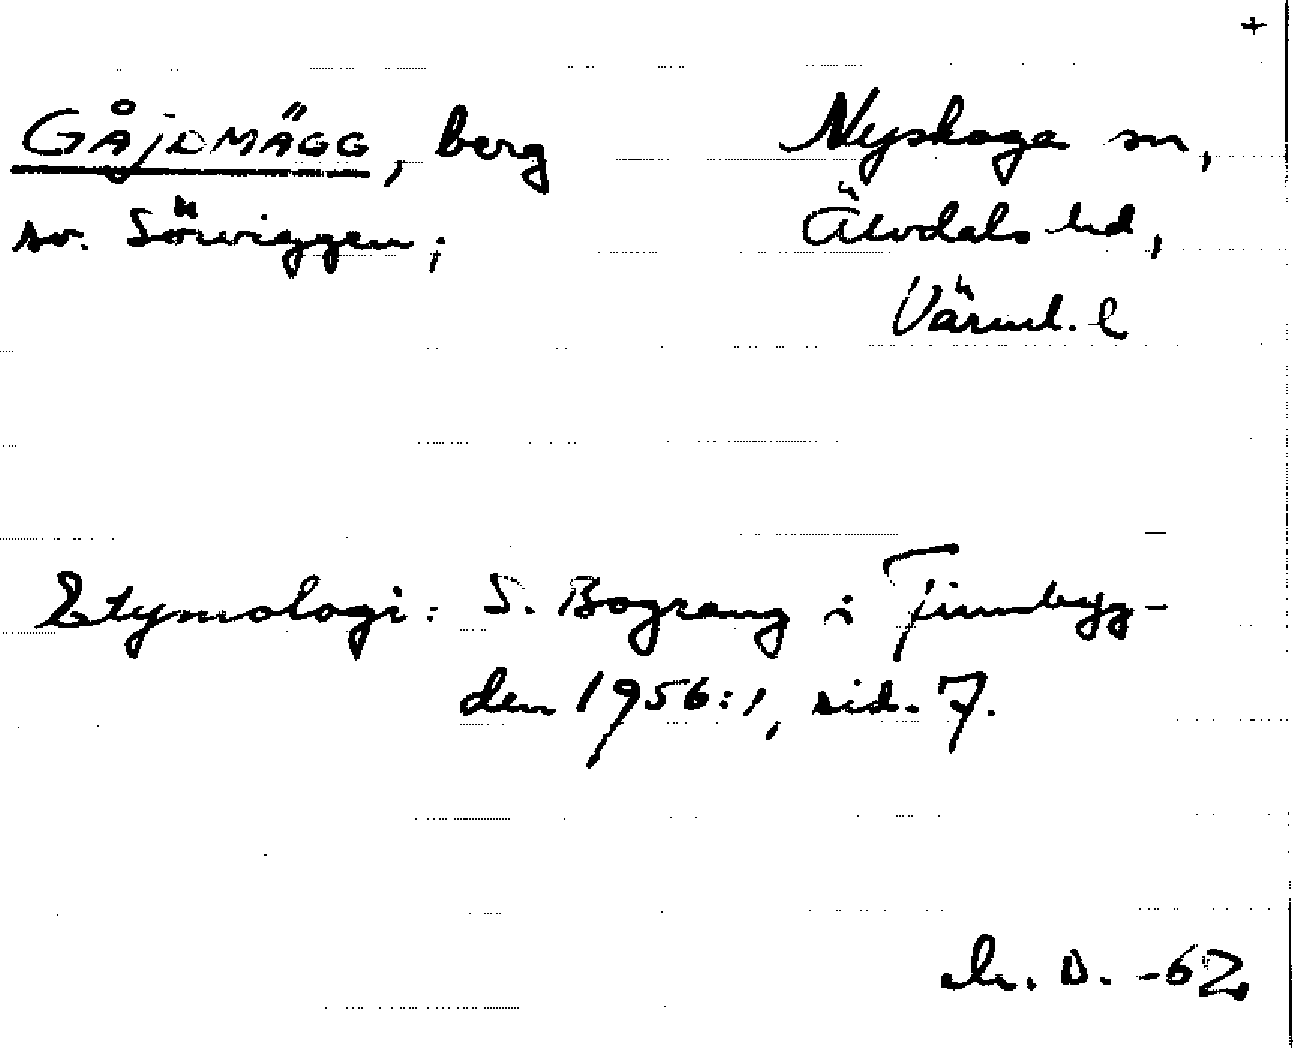 +
GÅJDMÄGG, berg
sv. Sörviggen;
Nyskoga sn,
Älvdals hd,
Värml. l
Etymologi: S. Bograng i Finnbyg-
den 1956:1, sid. 7.
D. -62